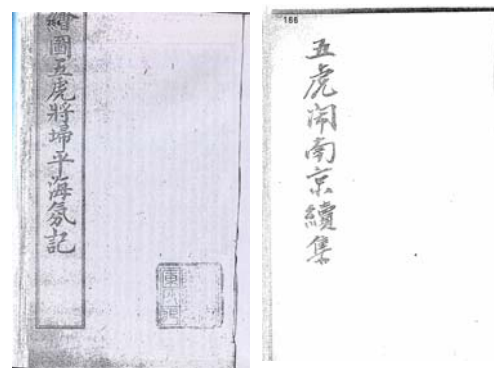 繪圖五虎將埽平海氛記
166
五虎鬧南京續集